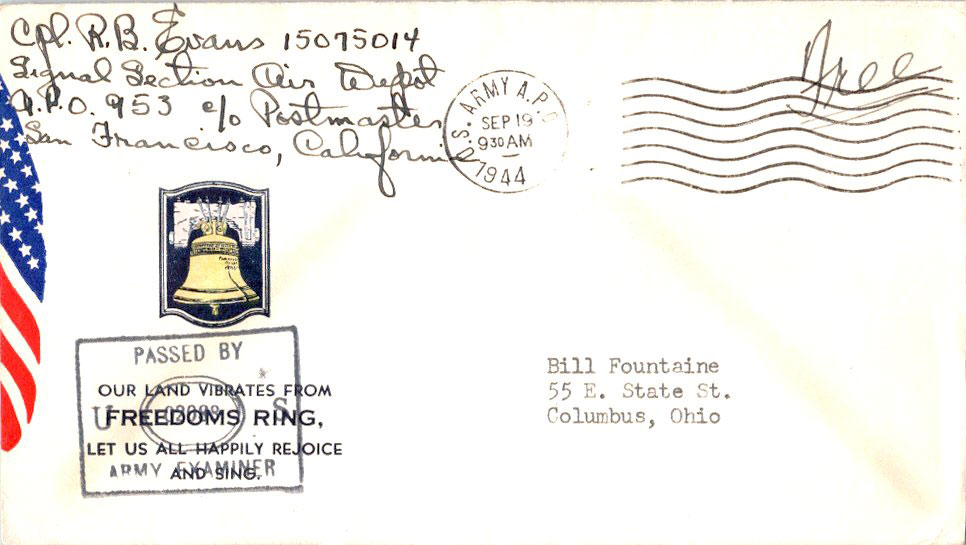 Cpl. R.B. Evans 15075014
Signal Section Air Depot
A.P.O. 953 c/o Postmaster
San Francisco, California
Free
U.S. ARMY A.P.O.
SEP 19
930 AM
1944
Bill Fountaine
55 E. State St.
Columbus, Ohio
PASSED BY
U S
ARMY EXAMINER
OUR LAND VIBRATES FROM
FREEDOMS RING,
LET US ALL HAPPILY REJOICE
AND SING.